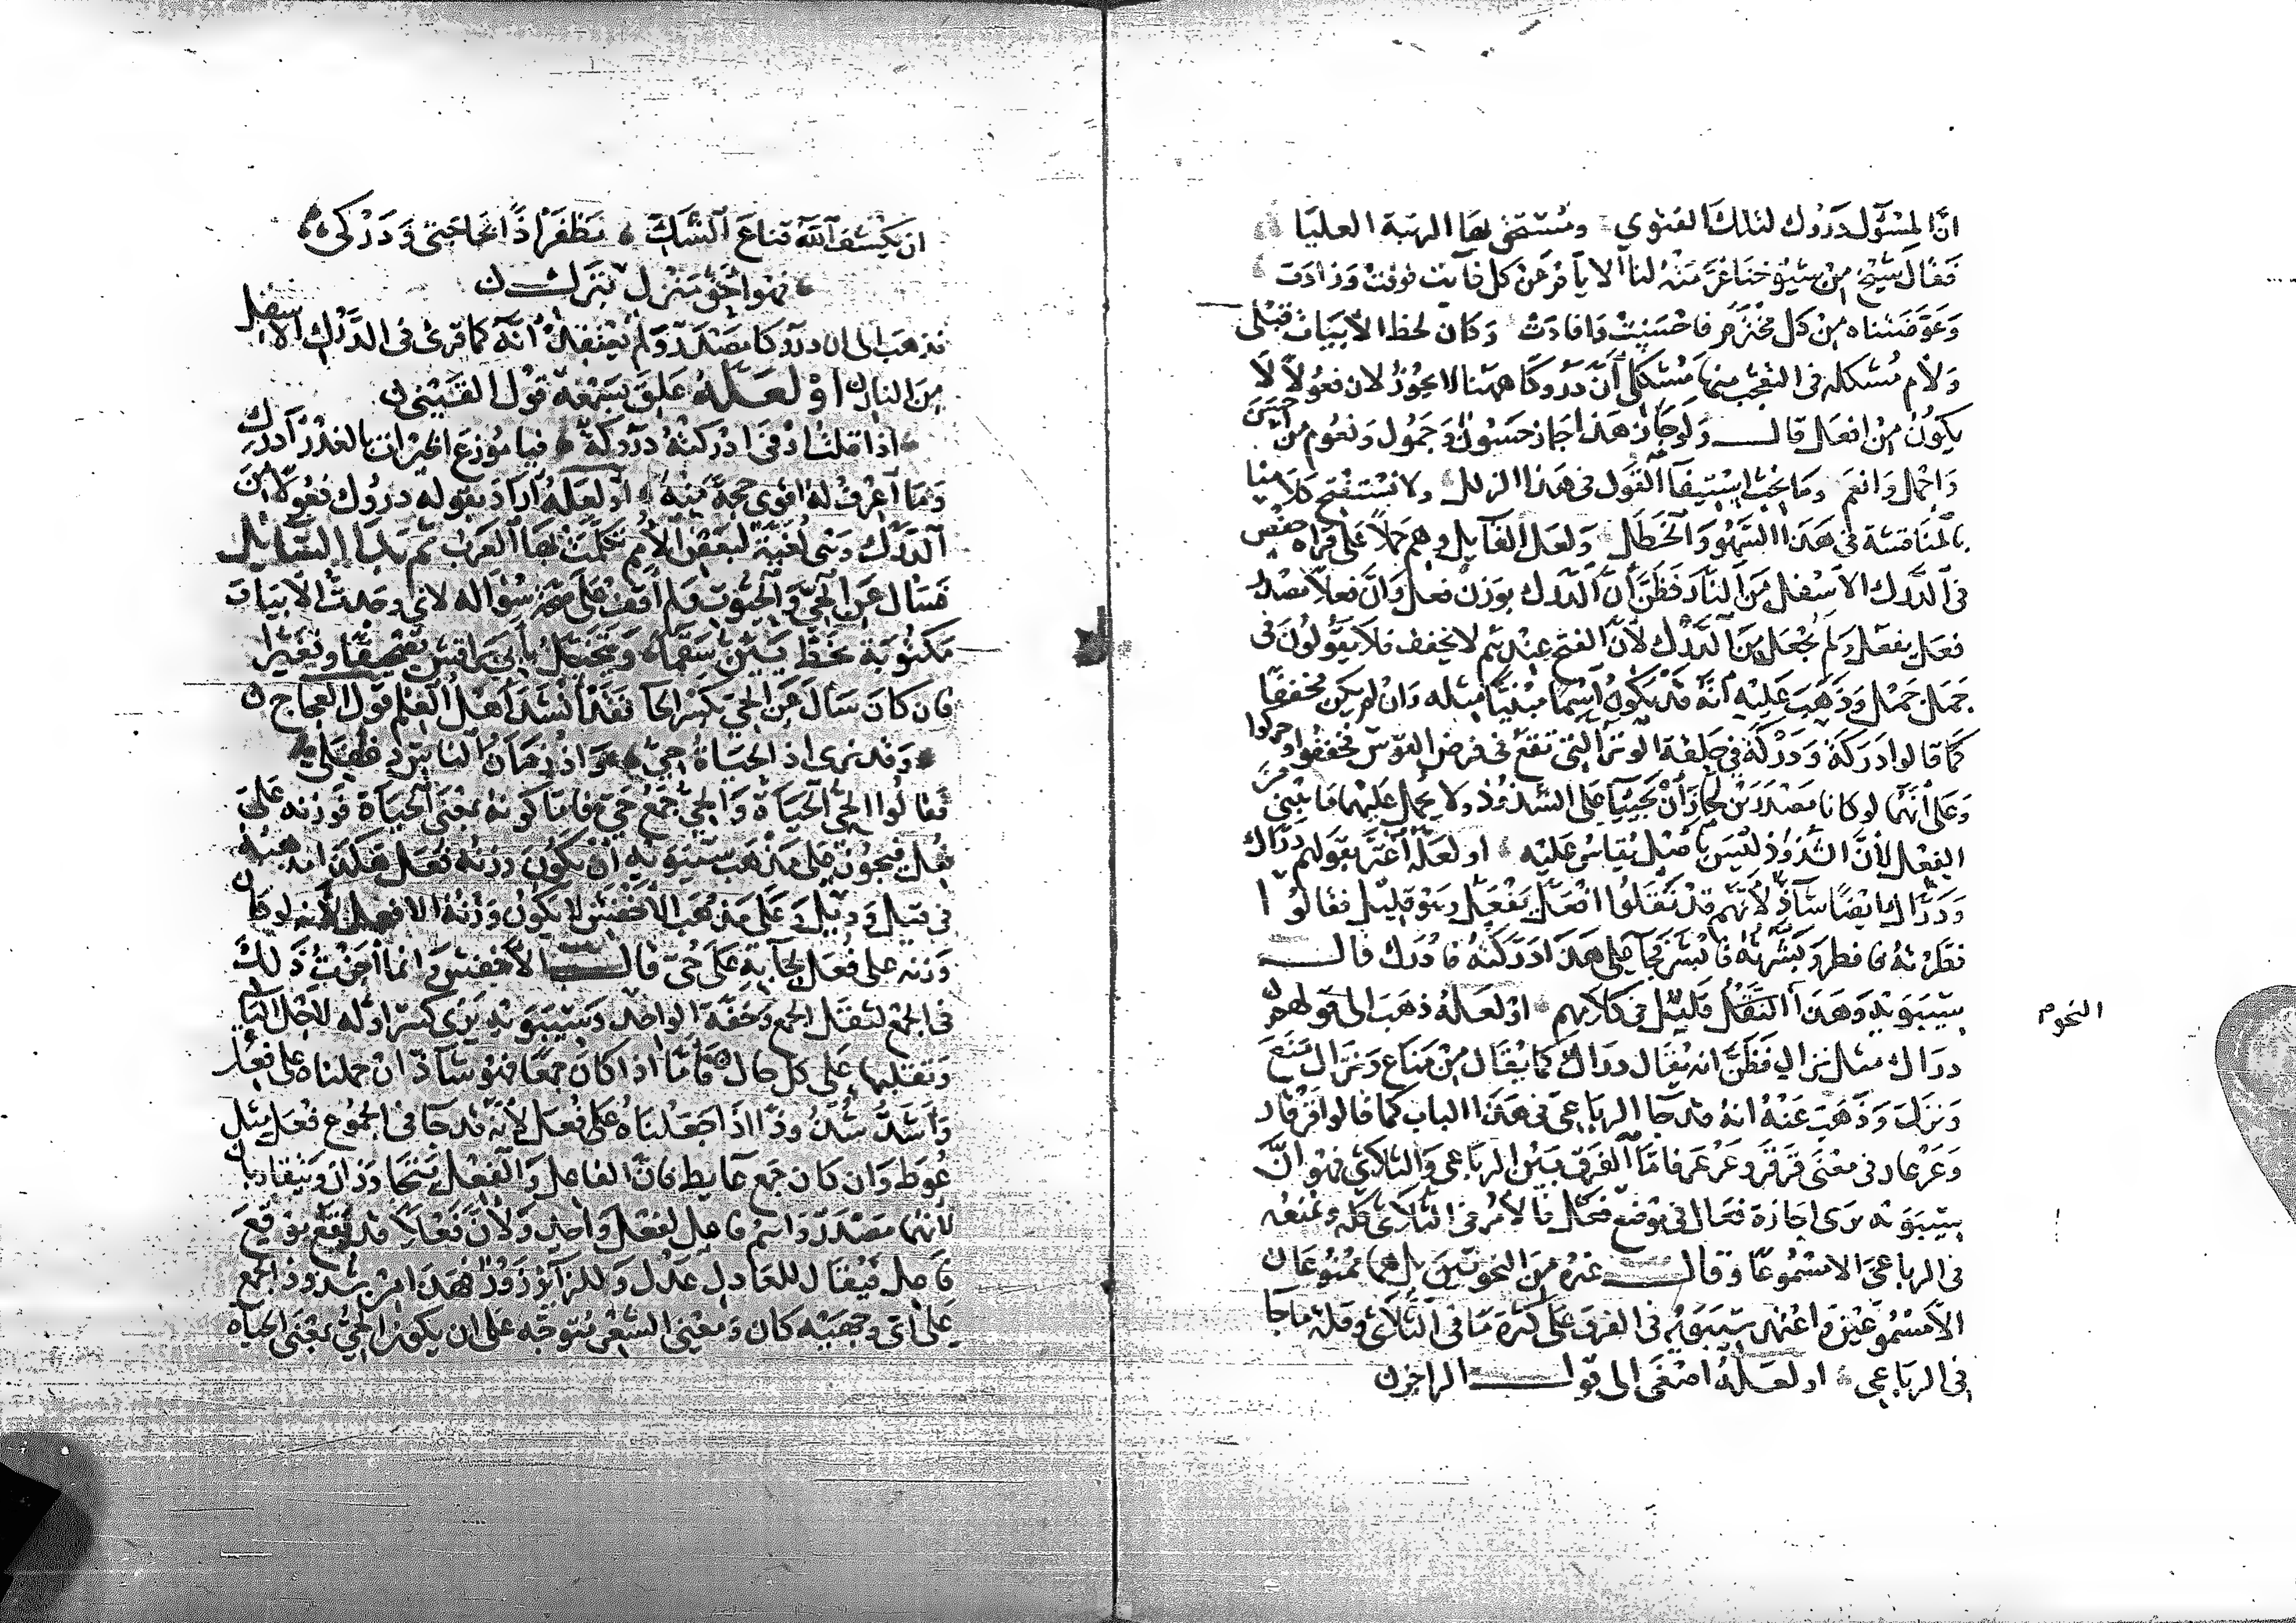 انّ المسؤل دروك لتلك الفتوى ومستحق بها الرتبة العليا
فقال شيخ من شيوخنا عز منه لنا الا يافر عن كل فايت فوفت وزادت
وعوضناه من كل مخترم فاحسنت وافادت وكان لحظ الابيات قبلى
ولام مشكله فى التعجب منها مستكل أنّ دروكا ههنا لا يجوز لان فعولا لا
يكون من افعل قال ولو جاز هذا جاز حسون وجمول ونعوم من احسن
واجمل وانعم وما يجب استيفا القول فى هذا الزلل ولا نستفتح كلامنا
بالمناقشة فى هذا السهو والخطل ولعل القايل وهم حملا على قراه حفص
فى الدرك الاسفل من النار فظن أن الدرك بوزن فعل وان فعلا مصدر
فعل يفعل ولم يجعل من الدرك لأن الفتح عندهم لا يخفف فلا يقولون فى
جمل جمل وذهب عليه انه قد يكون اسما مبنيا مثله وان لم يكن مخففا
كما قالوا دركة ودركة فى حلقة الوتر التى تقع فى فرض القوس فخففوا وحركوا
وعلى أنهما لو كانا مصدرين لجاز أن يجيئا على الشذوذ ولا يحمل عليهما ما بنى من
الفعل لأن الشذوذ ليس باصل يقاس عليه او لعله أغتر بقولهم درّاك
ودرّاك ايضا شاذ لانهم قد نقلوا افعل يفعل وهو قليل فقالوا
فطرته فافطر وبشرته فابشر فجا على هذا ادركته فادرك قال
سيبويه وهذا النقل قليل فى كلامهم او لعله ذهب الى قولهم
دراك مثل نزال فظن انه يقال دراك كما يقال من مناع ونزال منع
ونزل وذهب عنه انه قد جا الرباعى فى هذا الباب كما قالوا قرقار
وعرعار فى معنى قرقر وعرعر فاما الفرق بين الرباعى والثلاثى فهو انّ
سيبويه يرى اجازة فعال فى موضع فعل فالامر فى الثلاثى كله ويمنعه
فى الرباعى الا مسموعا وقال غيره من النحويين بل هما ممنوعان
الا مسموعين واعتمد سيبويه فى الفرق على كثرة ما فى الثلاثى وقلة ما جا
فى الرباعى او لعله اصغى الى قول الراجز
النحوم
ان يكشف الله قناع الشك نظفر اذًا بحاجتى ودركى
فهو احق منزل بترك
فذهب الى ان دركا مصدر ولم يعتقد أنه كما قرئ فى الدرك الاسفل
من النار او لعله علق بسمعه قول القينى
اذا قلت اوفى ادركته دروكة فيا موزع الجيران بالغدر أدرك
وما أعرف له اقوى حجة منه او لعله أراد بقوله دروك فعولا من
الدرك وهى لغية لبعض الأمم تكلمت بها العرب ثم القايل
فسال عن الحى والحيوت فلم أقف على سؤاله لانى وجدت الابيات
مكتوبة بخط يبين سقما ويتخيل بابى براقش تصحيفا وتغيرا
فان كان سال عن الحى بكسر الحا فقد أنشد أهل العلم قول العجاج
وقد نرى اذ الحياة حى واذ زمان الناس دغفلى
فقالوا الحى الحياة والحى جمع حى فاما كونه بمعنى الحياة فوزنه على
فعل فيجوز على مذهب سيبويه ان يكون وزنه فعل هكذا مذهبه
فى قيل وديل وعلى مذهب الأخفش لا يكون وزنه الا فعل لانه لو كان
وزنه على فعل لجا به على حى قال الأخفش وانما أجزت ذلك
فى الجمع لثقل الجمع وخفة الواحد وسيبويه يرى كسر اوله لاجل اليا
وتقلبها على كل حال فاما اذا كان جمعا فهو شاذ ان حملناه على فعل
وأشد شذوذا اذا جعلناه على فعل لأنه قد جا فى الجموع فعل مثل
عوط وان كان جمع عايط فان الفاعل والفعل
لأنهما مصدر واسم فاعل لفعل واحد ولأن فعلا قد تقع موقع
فاعل فيقال للعادل عدل وللزائر زور فهذا امر شذوذ الجمع
على أى وجهيه كان ومعنى الشعر متوجه على ان يكون الحى بمعنى الحياه